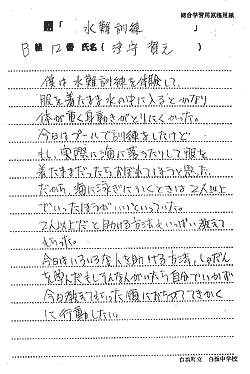 総合学習用原稿用紙
題「水難訓練」
B組 12番 氏名( )
僕は水難訓練を体験して、
服を着たまま水の中に入るとかなり
体が重く身動きがとりにくかった。
今日はプールで訓練をしたけど
もし、実際に海に落ちたりして服を
着たままだったらおぼれてしまうと思った。
だから、海に泳ぎにいくときは2人以上
でいったほうがいいといっていた。
2人以上だと助ける方法もいっぱい教えて
もらった。
今日はいろいろな人を助ける方法、
を学んだ もし そんな人がいたら自分で
今日教えてもらった 順におちついててきかく
に行動したい。
白浜町立 白浜中学校